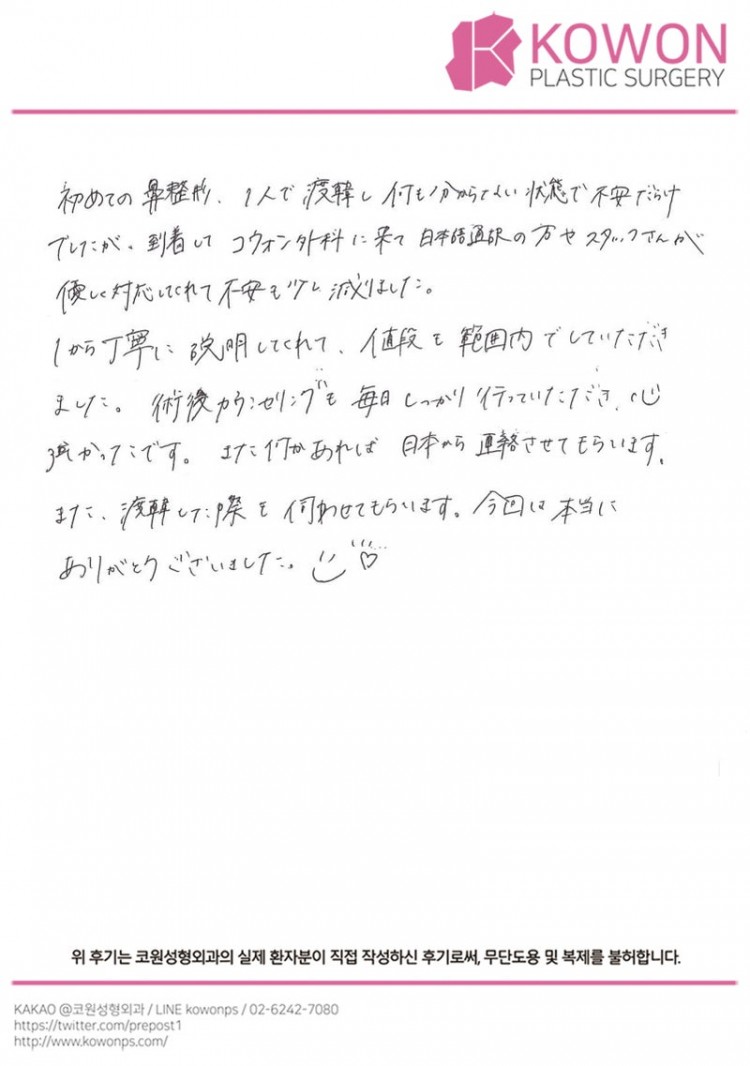 KOWON
PLASTIC SURGERY
初めての鼻整形、1人で渡韓し何も分からない状態で不安だらけ
でしたが、到着してコウォン外科に来て日本語通訳の方やスタッフさんが
優しく対応してくれて不安も少し減りました。
1から丁寧に説明してくれて、値段を範囲内でしていただき
ました。術後カウンセリングも毎日しっかり行っていただき、心
強かったです。また何かあれば日本から連絡させてもらいます。
また、渡韓した際を伺わせてもらいます。今回は本当に
ありがとうございました。
위 후기는 코원성형외과의 실제 환자분이 직접 작성하신 후기로써, 무단도용 및 복제를 불허합니다.
KAKAO @코원성형외과 / LINE kowonps / 02-6242-7080
https://twitter.com/prepost1
http://www.kowonps.com/